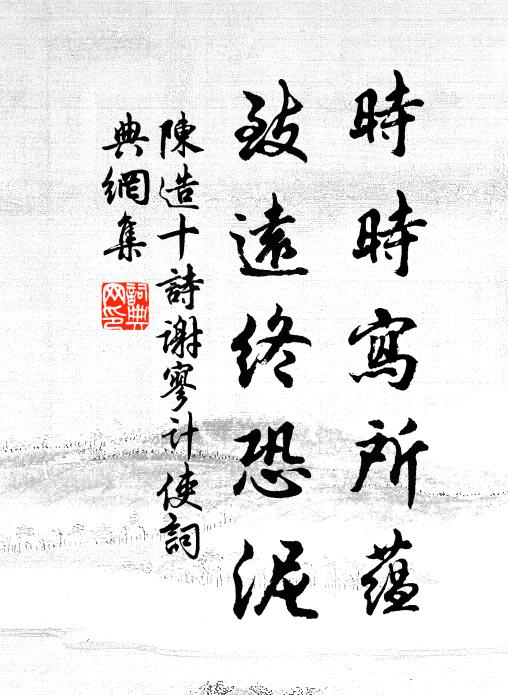 時時寫所蘊
致遠終恐泥
陳造十詩謝寥計使詞
典網集
詞典网印